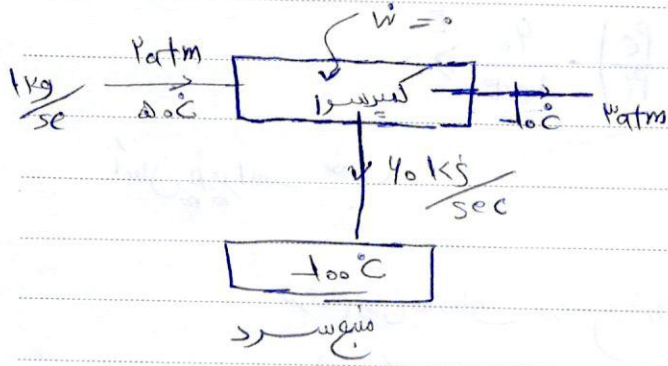 Ẇ = ۰
۲atm
۱kg/se
۵۰°C
کمپرسور
-۱۰°C
۳atm
۶۰ kj/sec
-۱۰۰°C
منبع سرد